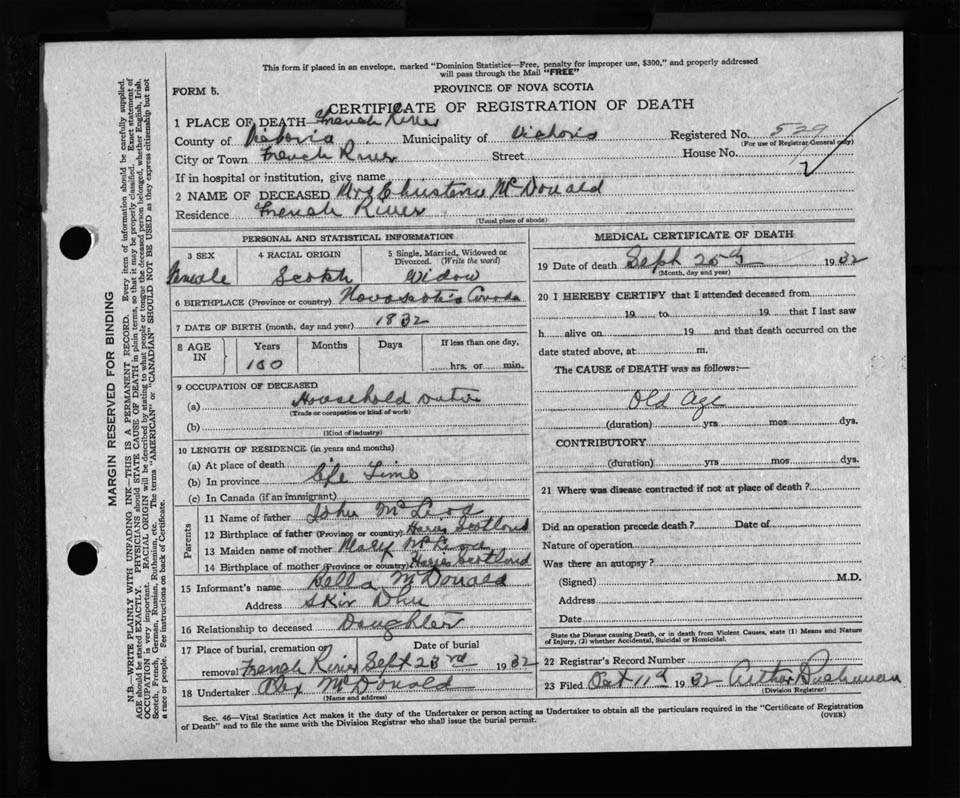 This form if placed in an envelope, marked "Dominion Statistics—Free, penalty for improper use, $300," and properly addressed
will pass through the Mail "FREE"
FORM 5.
PROVINCE OF NOVA SCOTIA
CERTIFICATE OF REGISTRATION OF DEATH
1 PLACE OF DEATH French River
County of Victoria Municipality of Victoria Registered No. 529
(For use of Registrar-General only)
City or Town French River Street House No.
If in hospital or institution, give name
2 NAME OF DECEASED Mrs Christena McDonald
Residence French River
(Usual place of abode)
PERSONAL AND STATISTICAL INFORMATION
3 SEX 4 RACIAL ORIGIN 5 Single, Married, Widowed or
Divorced. (Write the word)
Female Scotch Widow
6 BIRTHPLACE (Province or country) Nova Scotia Canada
7 DATE OF BIRTH (month, day and year) 1832
8 AGE IN Years Months Days If less than one day,
100 hrs. or min.
9 OCCUPATION OF DECEASED
(a) Household
(Trade or occupation or kind of work)
(b)
(Kind of industry)
10 LENGTH OF RESIDENCE (in years and months)
(a) At place of death
(b) In province Life Time
(c) In Canada (if an immigrant)
Parents
11 Name of father John McLeod
12 Birthplace of father (Province or country) Haris Scotland
13 Maiden name of mother Mary
14 Birthplace of mother (Province or country) Haris Scotland
15 Informant's name Bella McDonald
Address Skir Dhu
16 Relationship to deceased Daughter
17 Place of burial, cremation or Date of burial
removal French River Sept 23rd 1932
18 Undertaker Alex McDonald
(Name and address)
MEDICAL CERTIFICATE OF DEATH
19 Date of death Sept 1932
(Month, day and year)
20 I HEREBY CERTIFY that I attended deceased from
19 to 19 that I last saw
h alive on 19 and that death occurred on the
date stated above, at m.
The CAUSE of DEATH was as follows:—
Old Age
(duration) yrs mos dys.
CONTRIBUTORY
(duration) yrs mos dys.
21 Where was disease contracted if not at place of death?
Did an operation precede death? Date of
Nature of operation
Was there an autopsy?
(Signed) M.D.
Address
Date
State the Disease causing Death, or in death from Violent Causes, state (1) Means and Nature
of Injury, (2) whether Accidental, Suicidal or Homicidal.
22 Registrar's Record Number
23 Filed Oct 11th 1932 Arthur Buchanan
(Division Registrar)
Sec. 46—Vital Statistics Act makes it the duty of the Undertaker or person acting as Undertaker to obtain all the particulars required in the "Certificate of Registration
of Death" and to file the same with the Division Registrar who shall issue the burial permit.
(OVER)
MARGIN RESERVED FOR BINDING
N.B.—WRITE PLAINLY WITH UNFADING INK—THIS IS A PERMANENT RECORD. Every item of information should be carefully supplied.
AGE should be stated EXACTLY. PHYSICIANS should STATE CAUSE OF DEATH in plain terms, so that it may be properly classified. Exact statement of
OCCUPATION is very important. RACIAL ORIGIN will be described by stating to what people or tongue the deceased person belonged, whether English, Irish,
Scotch, French, German, Russian, Ruthenian, etc. The terms "AMERICAN" or "CANADIAN" SHOULD NOT BE USED as they express citizenship but not
a race or people. See instructions on back of Certificate.